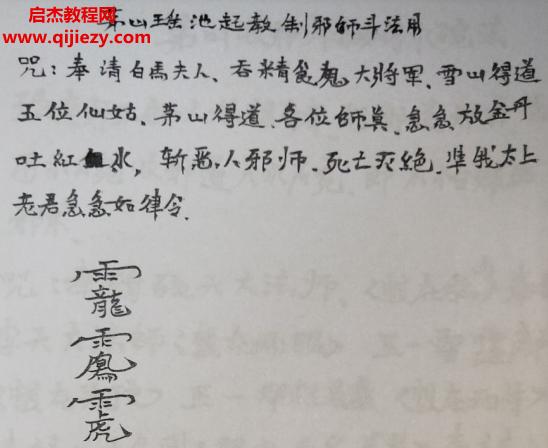 启杰易医网
www.qijiezy.com
茅山瑶池起教制邪師斗法用
咒：奉請白馬夫人、吞精食鬼大將军、雪山得道
五位仙姑、茅山得道、各位師真、急急放金丹
吐紅血水，斩恶人邪师、死亡灭絕、準我太上
老君急急如律令.
雨龍
雨鳳
雨虎